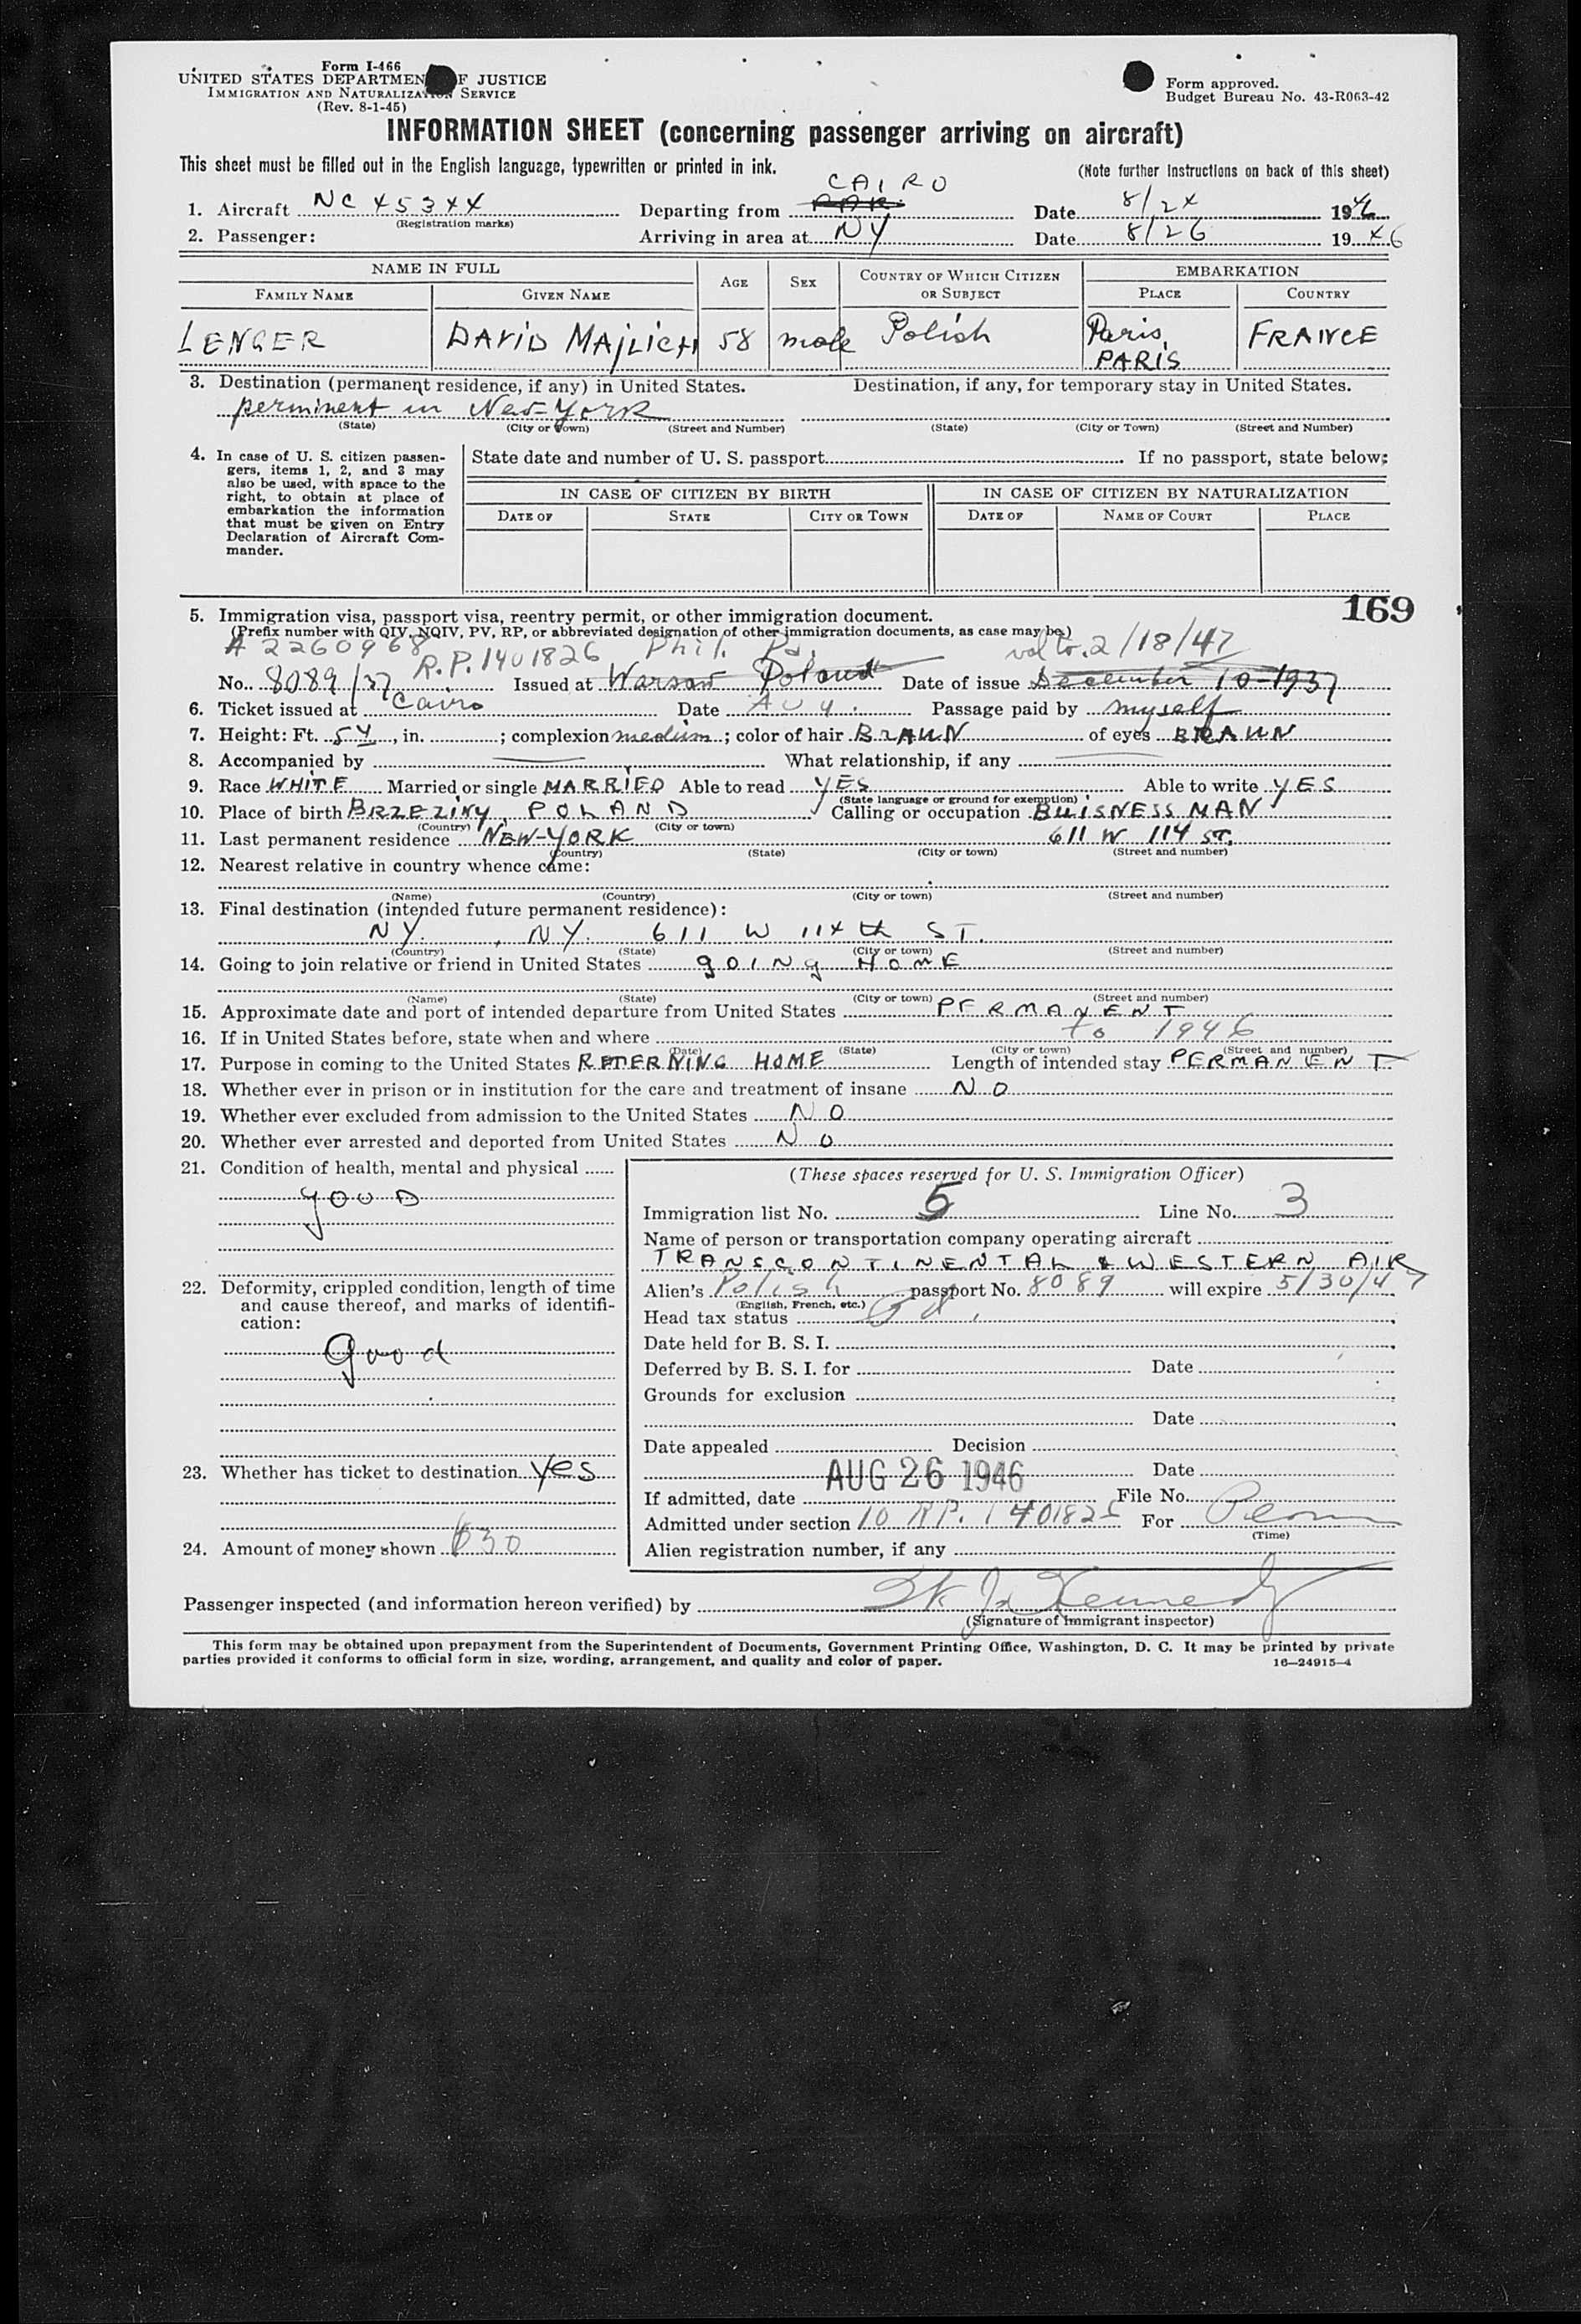 Form I-466
UNITED STATES DEPARTMENT OF JUSTICE
IMMIGRATION AND NATURALIZATION SERVICE
(Rev. 8-1-45)
Form approved.
Budget Bureau No. 43-R063-42
INFORMATION SHEET (concerning passenger arriving on aircraft)
This sheet must be filled out in the English language, typewritten or printed in ink. (Note further instructions on back of this sheet)
CAIRO
1. Aircraft NC 45344 Departing from PAR Date 8/24 1946
(Registration marks)
2. Passenger: Arriving in area at NY Date 8/26 1946
NAME IN FULL AGE SEX COUNTRY OF WHICH CITIZEN OR SUBJECT EMBARKATION
FAMILY NAME GIVEN NAME PLACE COUNTRY
LENGER DAViD MAjLiCH 58 male Polish Paris FRANCE
PARIS
3. Destination (permanent residence, if any) in United States. Destination, if any, for temporary stay in United States.
perminent in New-York
(State) (City or Town) (Street and Number) (State) (City or Town) (Street and Number)
4. In case of U. S. citizen passengers, items 1, 2, and 3 may also be used, with space to the right, to obtain at place of embarkation the information that must be given on Entry Declaration of Aircraft Commander.
State date and number of U. S. passport If no passport, state below:
IN CASE OF CITIZEN BY BIRTH IN CASE OF CITIZEN BY NATURALIZATION
DATE OF STATE CITY OR TOWN DATE OF NAME OF COURT PLACE
169
5. Immigration visa, passport visa, reentry permit, or other immigration document.
(Prefix number with QIV, NQIV, PV, RP, or abbreviated designation of other immigration documents, as case may be.)
A 2260968 R.P. 1401826 Phil. Pa. val to. 2/18/47
No. 8089/37 Issued at Warsaw Poland Date of issue December 10-1937
6. Ticket issued at Cairo Date AUG. Passage paid by myself
7. Height: Ft. 5 4, in. ; complexion medium; color of hair BRAUN of eyes BRAUN
8. Accompanied by What relationship, if any
9. Race WHITE Married or single MARRIED Able to read YES Able to write YES
(State language or ground for exemption)
10. Place of birth BRZEZINY, POLAND Calling or occupation BUISNESS MAN
(Country) (City or town)
11. Last permanent residence NEW-YORK 611 W 114 ST.
(Country) (State) (City or town) (Street and number)
12. Nearest relative in country whence came:
(Name) (Country) (City or town) (Street and number)
13. Final destination (intended future permanent residence):
NY. , NY. 611 W 114th ST.
(Country) (State) (City or town) (Street and number)
14. Going to join relative or friend in United States gOING HOME
(Name) (State) (City or town) (Street and number)
15. Approximate date and port of intended departure from United States PERMANENT
16. If in United States before, state when and where to 1946
(Date) (State) (City or town) (Street and number)
17. Purpose in coming to the United States RETERNING HOME Length of intended stay PERMANENT
18. Whether ever in prison or in institution for the care and treatment of insane NO
19. Whether ever excluded from admission to the United States NO
20. Whether ever arrested and deported from United States No
21. Condition of health, mental and physical
gooD
22. Deformity, crippled condition, length of time and cause thereof, and marks of identification:
Good
23. Whether has ticket to destination Yes
24. Amount of money shown 630
(These spaces reserved for U. S. Immigration Officer)
Immigration list No. 5 Line No. 3
Name of person or transportation company operating aircraft
TRANSCONTINENTAL & WESTERN AIR
Alien's Polish passport No. 8089 will expire 5/30/47
(English, French, etc.)
Head tax status
Date held for B. S. I.
Deferred by B. S. I. for Date
Grounds for exclusion
Date
Date appealed Decision
Date
If admitted, date AUG 26 1946 File No.
Admitted under section 10 RP. 1401826 For Perm
(Time)
Alien registration number, if any
Passenger inspected (and information hereon verified) by Kennedy
(Signature of immigrant inspector)
This form may be obtained upon prepayment from the Superintendent of Documents, Government Printing Office, Washington, D. C. It may be printed by private
parties provided it conforms to official form in size, wording, arrangement, and quality and color of paper. 16—24915-4